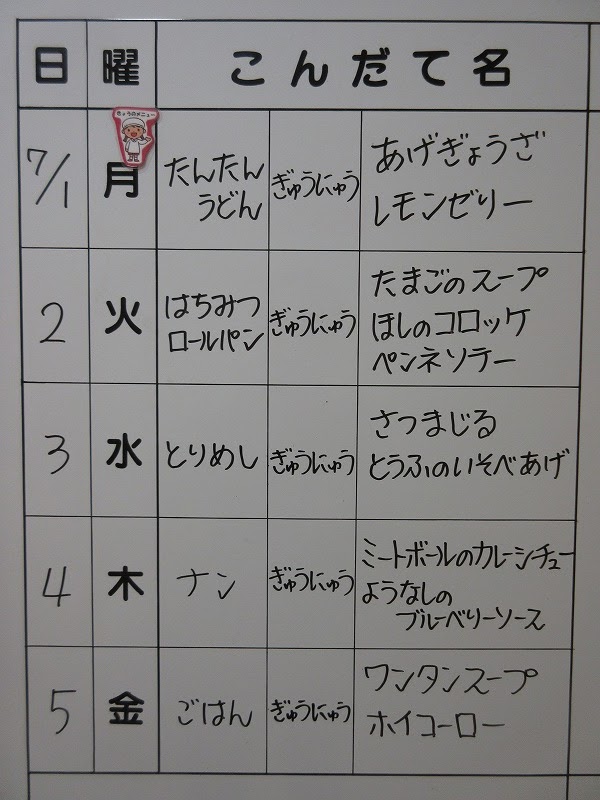 日 曜 こんだて名
きょうのメニュー
7/1 月 たんたん
うどん
ぎゅうにゅう
あげぎょうざ
レモンゼリー
2 火 はちみつ
ロールパン
ぎゅうにゅう
たまごのスープ
ほしのコロッケ
ペンネソテー
3 水 とりめし ぎゅうにゅう
さつまじる
とうふのいそべあげ
4 木 ナン ぎゅうにゅう
ミートボールのカレーシチュー
ようなしの
ブルーベリーソース
5 金 ごはん ぎゅうにゅう
ワンタンスープ
ホイコーロー